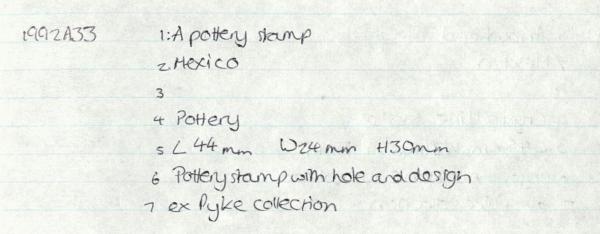 1992A33 1: A pottery stamp
2 Mexico
3
4 Pottery
5 L 44mm W24mm H30mm
6 Pottery stamp with hole and design
7 ex Pyke collection